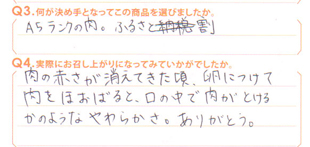 Q3.何が決め手となってこの商品を選びましたか。
A5ランクの肉。ふるさと納税割
Q4.実際にお召し上がりになってみていかがでしたか。
肉の赤さが消えてきた頃、卵につけて
肉をほおばると、口の中で肉がとける
かのようなやわらかさ。ありがとう。